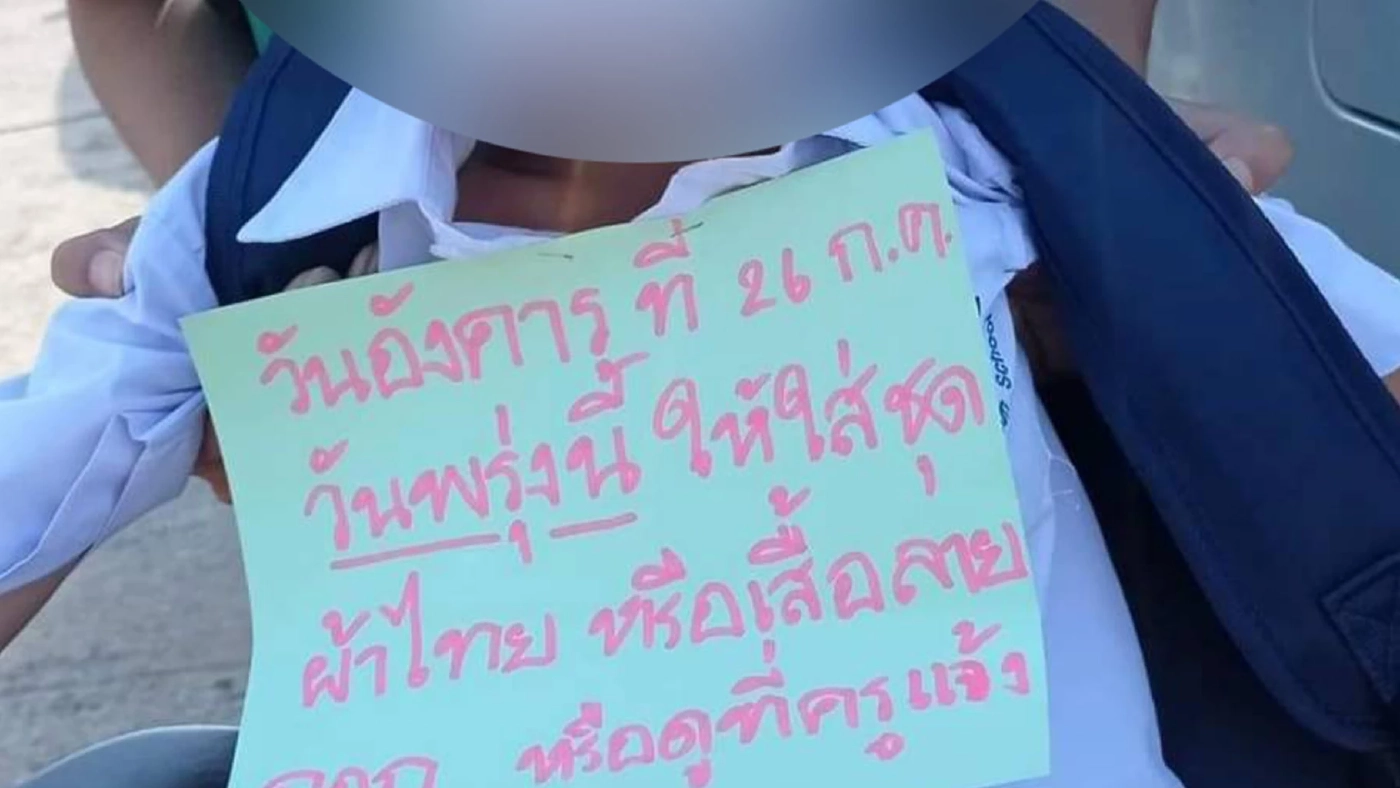 วันอังคาร ที่ 26 ก.ค.
วันพรุ่งนี้ ให้ใส่ชุด
ผ้าไทย หรือเสื้อลาย
หรือดูที่ครูแจ้ง
School